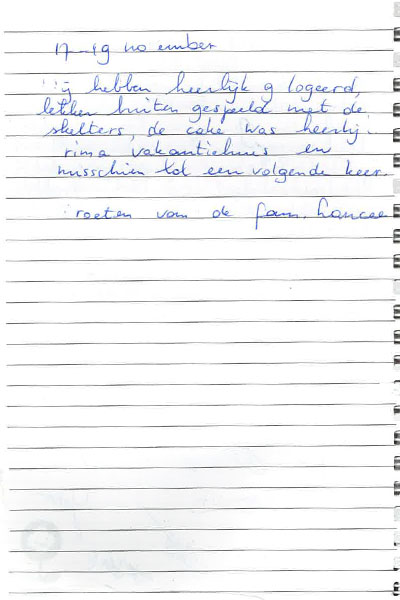 17-19 no ember
ij hebben heerlijk g logeerd,
lekker buiten gespeeld met de
skelters, de cake was heerlij
rima vakantiehuis en
misschien tot een volgende keer.
roeten van de fam.